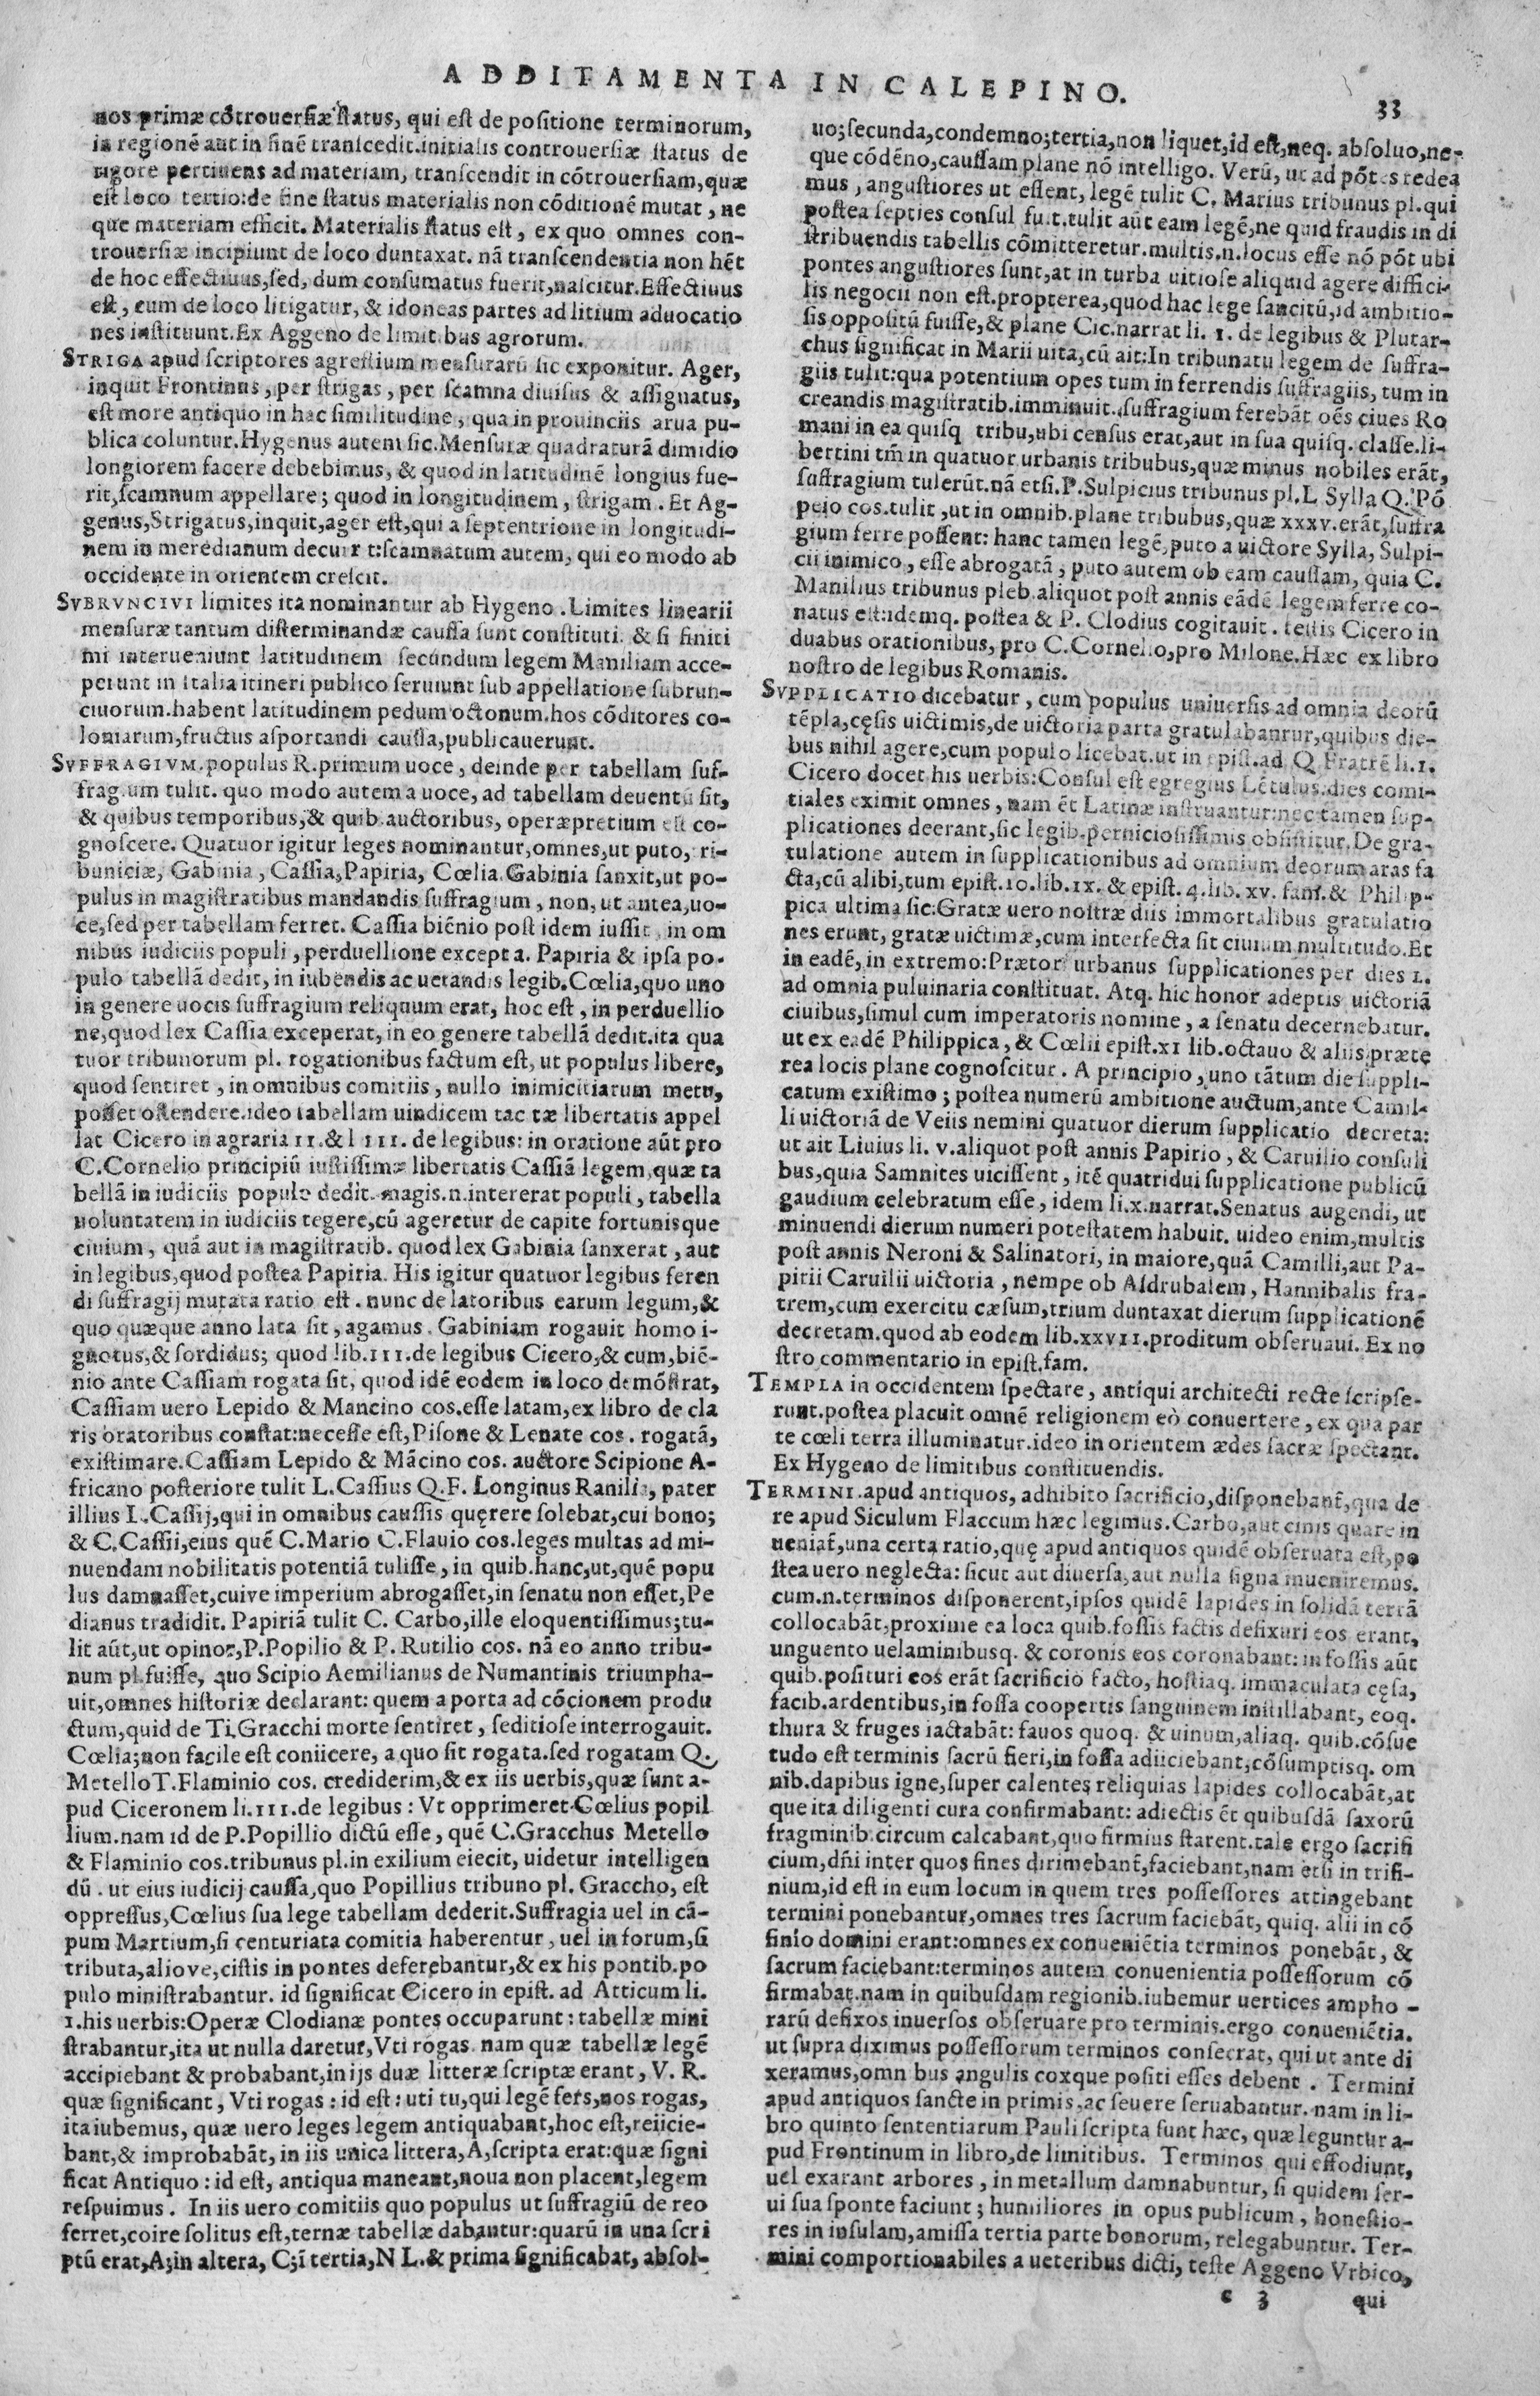 ADDITAMENTA IN CALEPINO.
33
nos primæ cõtrouersiæ status, qui est de positione terminorum,
in regionẽ aut in finẽ transcedit.initialis controuersiæ status de
rigore pertinens ad materiam, transcendit in cõtrouersiam,quæ
est loco tertio:de fine status materialis non cõditionẽ mutat, ne
que materiam efficit. Materialis status est, ex quo omnes con-
trouersiæ incipiunt de loco duntaxat. nã transcendentia non hẽt
de hoc effectiuus,sed, dum consumatus fuerit,nascitur.Effectiuus
est, cum de loco litigatur, & idoneas partes ad litium aduocatio
nes instituunt.Ex Aggeno de limit bus agrorum.
STRIGA apud scriptores agrestium mensurarũ sic exponitur. Ager,
inquit Frontinus, per strigas, per scamna diuisus & assignatus,
est more antiquo in hac similitudine, qua in prouinciis arua pu-
blica coluntur.Hygenus autem sic.Mensuræ quadraturã dimidio
longiorem facere debebimus, & quod in latitudinẽ longius fue-
rit,scamnum appellare; quod in longitudinem, strigam. Et Ag-
genus,Strigatus,inquit,ager est,qui a septentrione in longitudi-
nem in meredianum decurr t:scamnatum autem, qui eo modo ab
occidente in orientem crescit.
SVBRVNCIVI limites ita nominantur ab Hygeno. Limites linearii
mensuræ tantum disterminandæ caussa sunt constituti. & si finiti
mi interueniunt latitudinem secundum legem Mamiliam acce-
perunt in Italia itineri publico seruiunt sub appellatione subrun-
ciuorum.habent latitudinem pedum octonum.hos cõditores co-
loniarum,fructus asportandi caussa,publicauerunt.
SVFFRAGIVM.populus R.primum uoce, deinde per tabellam suf-
frag um tulit. quo modo autem a uoce, ad tabellam deuentũ sit,
& quibus temporibus,& quib.auctoribus, operæpretium est co-
gnoscere. Quatuor igitur leges nominantur,omnes,ut puto, ri-
buniciæ, Gabinia, Cassia, Papiria, Cœlia.Gabinia sanxit,ut po-
pulus in magistratibus mandandis suffragium, non, ut antea,uo-
ce,sed per tabellam ferret. Cassia biẽnio post idem iussit, in om
nibus iudiciis populi, perduellione excepta. Papiria & ipsa po-
pulo tabellã dedit, in iubendis ac uetandis legib.Cœlia,quo uno
in genere uocis suffragium reliquum erat, hoc est, in perduellio
ne,quod lex Cassia exceperat, in eo genere tabellã dedit.ita qua
tuor tribunorum pl. rogationibus factum est, ut populus libere,
quod sentiret, in omnibus comitiis, nullo inimicitiarum metu,
posset ostendere.ideo tabellam uindicem tac tæ libertatis appel
lat Cicero in agraria II.& l III. de legibus: in oratione aũt pro
C.Cornelio principiũ iustissimæ libertatis Cassiã legem,quæ ta
bellã in iudiciis populo dedit. magis.n.intererat populi, tabella
uoluntatem in iudiciis tegere,cũ ageretur de capite fortunisque
ciuium, quã aut in magistratib. quod lex Gabinia sanxerat, aut
in legibus,quod postea Papiria. His igitur quatuor legibus feren
di suffragij mutata ratio est. nunc de latoribus earum legum,&
quo quæque anno lata sit, agamus. Gabiniam rogauit homo i-
gnotus,& sordidus; quod lib.III.de legibus Cicero,& cum,biẽ-
nio ante Cassiam rogata sit, quod idẽ eodem in loco demõstrat,
Cassiam uero Lepido & Mancino cos.esse latam,ex libro de cla
ris oratoribus constat:necesse est,Pisone & Lenate cos. rogatã,
existimare.Cassiam Lepido & Mãcino cos. auctore Scipione A-
fricano posteriore tulit L.Cassius Q.F. Longinus Ranilia, pater
illius L.Cassij,qui in omnibus caussis quęrere solebat,cui bono;
& C.Cassii,eius quẽ C.Mario C.Flauio cos.leges multas ad mi-
nuendam nobilitatis potentiã tulisse, in quib.hanc,ut,quẽ popu
lus damnasset,cuive imperium abrogasset,in senatu non esset,Pe
dianus tradidit. Papiriã tulit C. Carbo,ille eloquentissimus;tu-
lit aũt,ut opinor,P.Popilio & P. Rutilio cos. nã eo anno tribu-
num pl.fuisse, quo Scipio Aemilianus de Numantinis triumpha-
uit,omnes historiæ declarant: quem a porta ad cõcionem produ
ctum,quid de Ti.Gracchi morte sentiret, seditiose interrogauit.
Cœlia;non facile est coniicere, a quo sit rogata.sed rogatam Q.
Metello T.Flaminio cos. crediderim,& ex iis uerbis,quæ sunt a-
pud Ciceronem li.III.de legibus: Vt opprimeret Cœlius popil
lium.nam id de P.Popillio dictũ esse, quẽ C.Gracchus Metello
& Flaminio cos.tribunus pl.in exilium eiecit, uidetur intelligen
dũ. ut eius iudicij caussa,quo Popillius tribuno pl. Graccho, est
oppressus,Cœlius sua lege tabellam dederit.Suffragia uel in cã-
pum Martium,si centuriata comitia haberentur, uel in forum,si
tributa,aliove,cistis in pontes deferebantur,& ex his pontib.po
pulo ministrabantur. id significat Cicero in epist. ad Atticum li.
I.his uerbis:Operæ Clodianæ pontes occuparunt: tabellæ mini
strabantur,ita ut nulla daretur,Vti rogas. nam quæ tabellæ legẽ
accipiebant & probabant,in ijs duæ litteræ scriptæ erant, V. R.
quæ significant, Vti rogas: id est: uti tu,qui legẽ fers,nos rogas,
ita iubemus, quæ uero leges legem antiquabant,hoc est,reiicie-
bant,& improbabãt, in iis unica littera,A,scripta erat:quæ signi
ficat Antiquo: id est, antiqua maneant,noua non placent,legem
respuimus. In iis uero comitiis quo populus ut suffragiũ de reo
ferret,coire solitus est,ternæ tabellæ dabantur:quarũ in una scri
ptũ erat,A;in altera, C;ĩ tertia,N L.& prima significabat, absol-
uo;secunda,condemno;tertia,non liquet,id est,neq. absoluo,ne-
que cõdẽno,caussam plane nõ intelligo. Verũ, ut ad põtes redea
mus, angustiores ut essent, legẽ tulit C. Marius tribunus pl.qui
postea septies consul fuit.tulit aũt eam legẽ,ne quid fraudis in di
stribuendis tabellis cõmitteretur.multis.n.locus esse nõ põt ubi
pontes angustiores sunt,at in turba uitiose aliquid agere diffici-
lis negocii non est.propterea,quod hac lege sancitũ,id ambitio-
sis oppositũ fuisse,& plane Cic.narrat li. I. de legibus & Plutar-
chus significat in Marii uita,cũ ait:In tribunatu legem de suffra-
giis tulit:qua potentium opes tum in ferrendis suffragiis, tum in
creandis magistratib.imminuit.suffragium ferebãt oẽs ciues Ro
mani in ea quisq tribu,ubi census erat,aut in sua quisq. classe.li-
bertini tm̃ in quatuor urbanis tribubus,quæ minus nobiles erãt,
suffragium tulerũt.nã etsi.P.Sulpicius tribunus pl.L Sylla Q. Põ
peio cos.tulit,ut in omnib.plane tribubus,quæ xxxv.erãt,suffra
gium ferre possent: hanc tamen legẽ,puto a uictore Sylla, Sulpi-
cii inimico, esse abrogatã, puto autem ob eam caussam, quia C.
Manilius tribunus pleb.aliquot post annis eãdẽ legem ferre co-
natus est:idemq. postea & P. Clodius cogitauit. testis Cicero in
duabus orationibus, pro C.Cornelio,pro Milone.Hæc ex libro
nostro de legibus Romanis.
SVPPLICATIO dicebatur, cum populus uniuersis ad omnia deorũ
tẽpla,cęsis uictimis,de uictoria parta gratulabantur,quibus die-
bus nihil agere,cum populo licebat.ut in epist.ad Q Fratrẽ li.I.
Cicero docet his uerbis:Consul est egregius Lẽtulus.dies comi-
tiales eximit omnes, nam ẽt Latinæ instruantur:nec tamen sup-
plicationes deerant,sic legib.perniciosissimis obsistitur.De gra-
tulatione autem in supplicationibus ad omnium deorum aras fa
cta,cũ alibi,tum epist.10.lib.IX. & epist.4.lib.XV. fam.& Philip-
pica ultima sic:Gratæ uero nostræ diis immortalibus gratulatio
nes erunt, gratæ uictimæ,cum interfecta sit ciuium multitudo.Et
in eadẽ, in extremo:Prætor urbanus supplicationes per dies L.
ad omnia puluinaria constituat. Atq. hic honor adeptis uictoriã
ciuibus,simul cum imperatoris nomine, a senatu decernebatur.
ut ex eadẽ Philippica, & Cœlii epist.XI lib.octauo & aliis præte
rea locis plane cognoscitur. A principio, uno tãtum die suppli-
catum existimo; postea numerũ ambitione auctum,ante Camil-
li uictoriã de Veiis nemini quatuor dierum supplicatio decreta:
ut ait Liuius li. v.aliquot post annis Papirio, & Caruilio consuli
bus,quia Samnites uicissent, itẽ quatridui supplicatione publicũ
gaudium celebratum esse, idem li.x.narrat.Senatus augendi, ut
minuendi dierum numeri potestatem habuit. uideo enim,multis
post annis Neroni & Salinatori, in maiore,quã Camilli,aut Pa-
pirii Caruilii uictoria, nempe ob Asdrubalem, Hannibalis fra-
trem,cum exercitu cæsum,trium duntaxat dierum supplicationẽ
decretam.quod ab eodem lib.XXVII.proditum obseruaui. Ex no
stro commentario in epist.fam.
TEMPLA in occidentem spectare, antiqui architecti recte scripse-
runt.postea placuit omnẽ religionem eò conuertere, ex qua par
te cœli terra illuminatur.ideo in orientem ædes sacræ spectant.
Ex Hygeno de limitibus constituendis.
TERMINI.apud antiquos, adhibito sacrificio,disponebant̃,qua de
re apud Siculum Flaccum hæc legimus.Carbo,aut cinis quare in
ueniat̃,una certa ratio,quę apud antiquos quidẽ obseruata est,po
stea uero neglecta: sicut aut diuersa,aut nulla signa inueniremus.
cum.n.terminos disponerent,ipsos quidẽ lapides in solidã terrã
collocabãt,proxime ea loca quib.fossis factis defixuri eos erant,
unguento uelaminibusq. & coronis eos coronabant: in fossis aũt
quib.posituri eos erãt sacrificio facto, hostiaq. immaculata cęsa,
facib.ardentibus,in fossa coopertis sanguinem instillabant, eoq.
thura & fruges iactabãt: fauos quoq. & uinum,aliaq. quib.cõsue
tudo est terminis sacrũ fieri,in fossa adiiciebant,cõsumptisq. om
nib.dapibus igne,super calentes reliquias lapides collocabãt,at
que ita diligenti cura confirmabant: adiectis ẽt quibusdã saxorũ
fragminib.circum calcabant,quo firmius starent.tale ergo sacrifi
cium,dñi inter quos fines dirimebant̃,faciebant,nam etsi in trifi-
nium,id est in eum locum in quem tres possessores attingebant
termini ponebantur,omnes tres sacrum faciebãt, quiq. alii in cõ
finio domini erant:omnes ex conueniẽtia terminos ponebãt, &
sacrum faciebant:terminos autem conuenientia possessorum cõ
firmabat.nam in quibusdam regionib.iubemur uertices ampho-
rarũ defixos inuersos obseruare pro terminis.ergo conueniẽtia.
ut supra diximus possessorum terminos consecrat, qui ut ante di
xeramus,omn bus angulis coxque positi esses debent. Termini
apud antiquos sancte in primis,ac seuere seruabantur.nam in li-
bro quinto sententiarum Pauli scripta sunt hæc, quæ leguntur a-
pud Frontinum in libro,de limitibus. Terminos qui effodiunt,
uel exarant arbores, in metallum damnabuntur, si quidem ser-
ui sua sponte faciunt; humiliores in opus publicum, honestio-
res in insulam,amissa tertia parte bonorum, relegabuntur. Ter-
mini comportionabiles a ueteribus dicti, teste Aggeno Vrbico,
c 3 qui